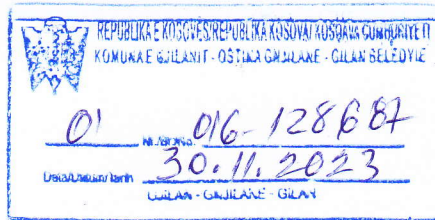 REPUBLIKA E KOSOVËS/REPUBLIKA KOSOVA/KOSOVA CUMHURIYETI
KOMUNA E GJILANIT - OPŠTINA GNJILANE - GILAN BELEDIYE
01 016-128687
Data/Datum/Tarih 30.11.2023
GJILAN - GNJILANE - GILAN